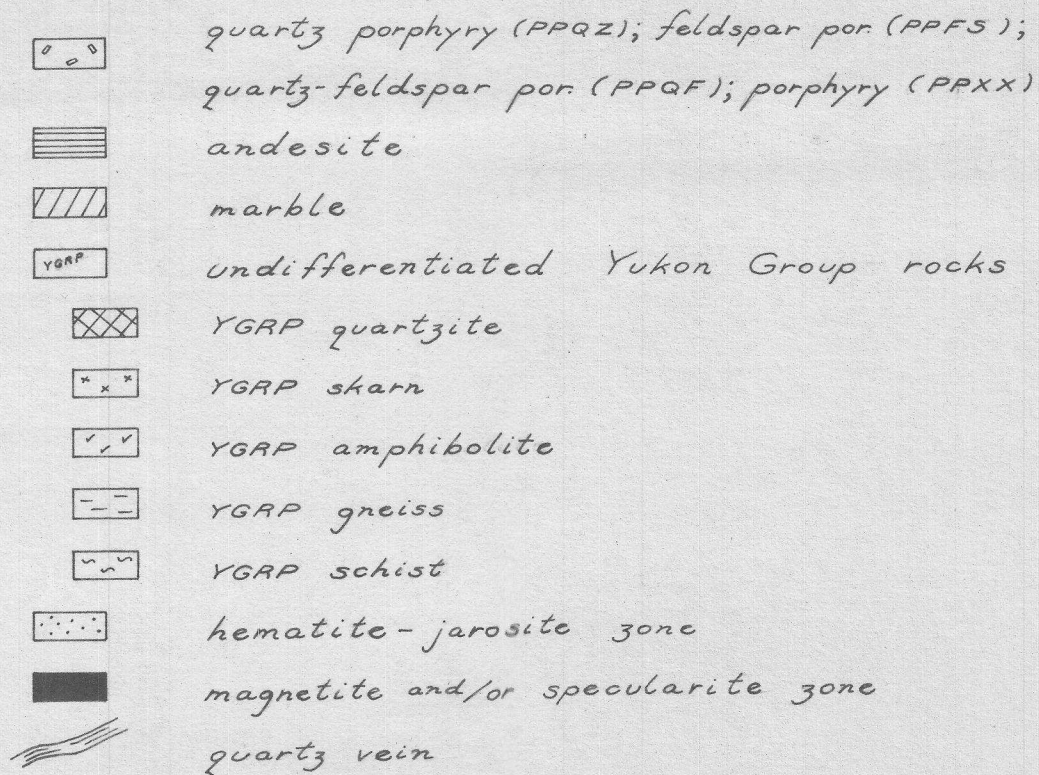 quartz porphyry (PPQZ); feldspar por. (PPFS);
quartz-feldspar por. (PPQF); porphyry (PPXX)
andesite
marble
YGRP undifferentiated Yukon Group rocks
YGRP quartzite
YGRP skarn
YGRP amphibolite
YGRP gneiss
YGRP schist
hematite - jarosite zone
magnetite and/or specularite zone
quartz vein